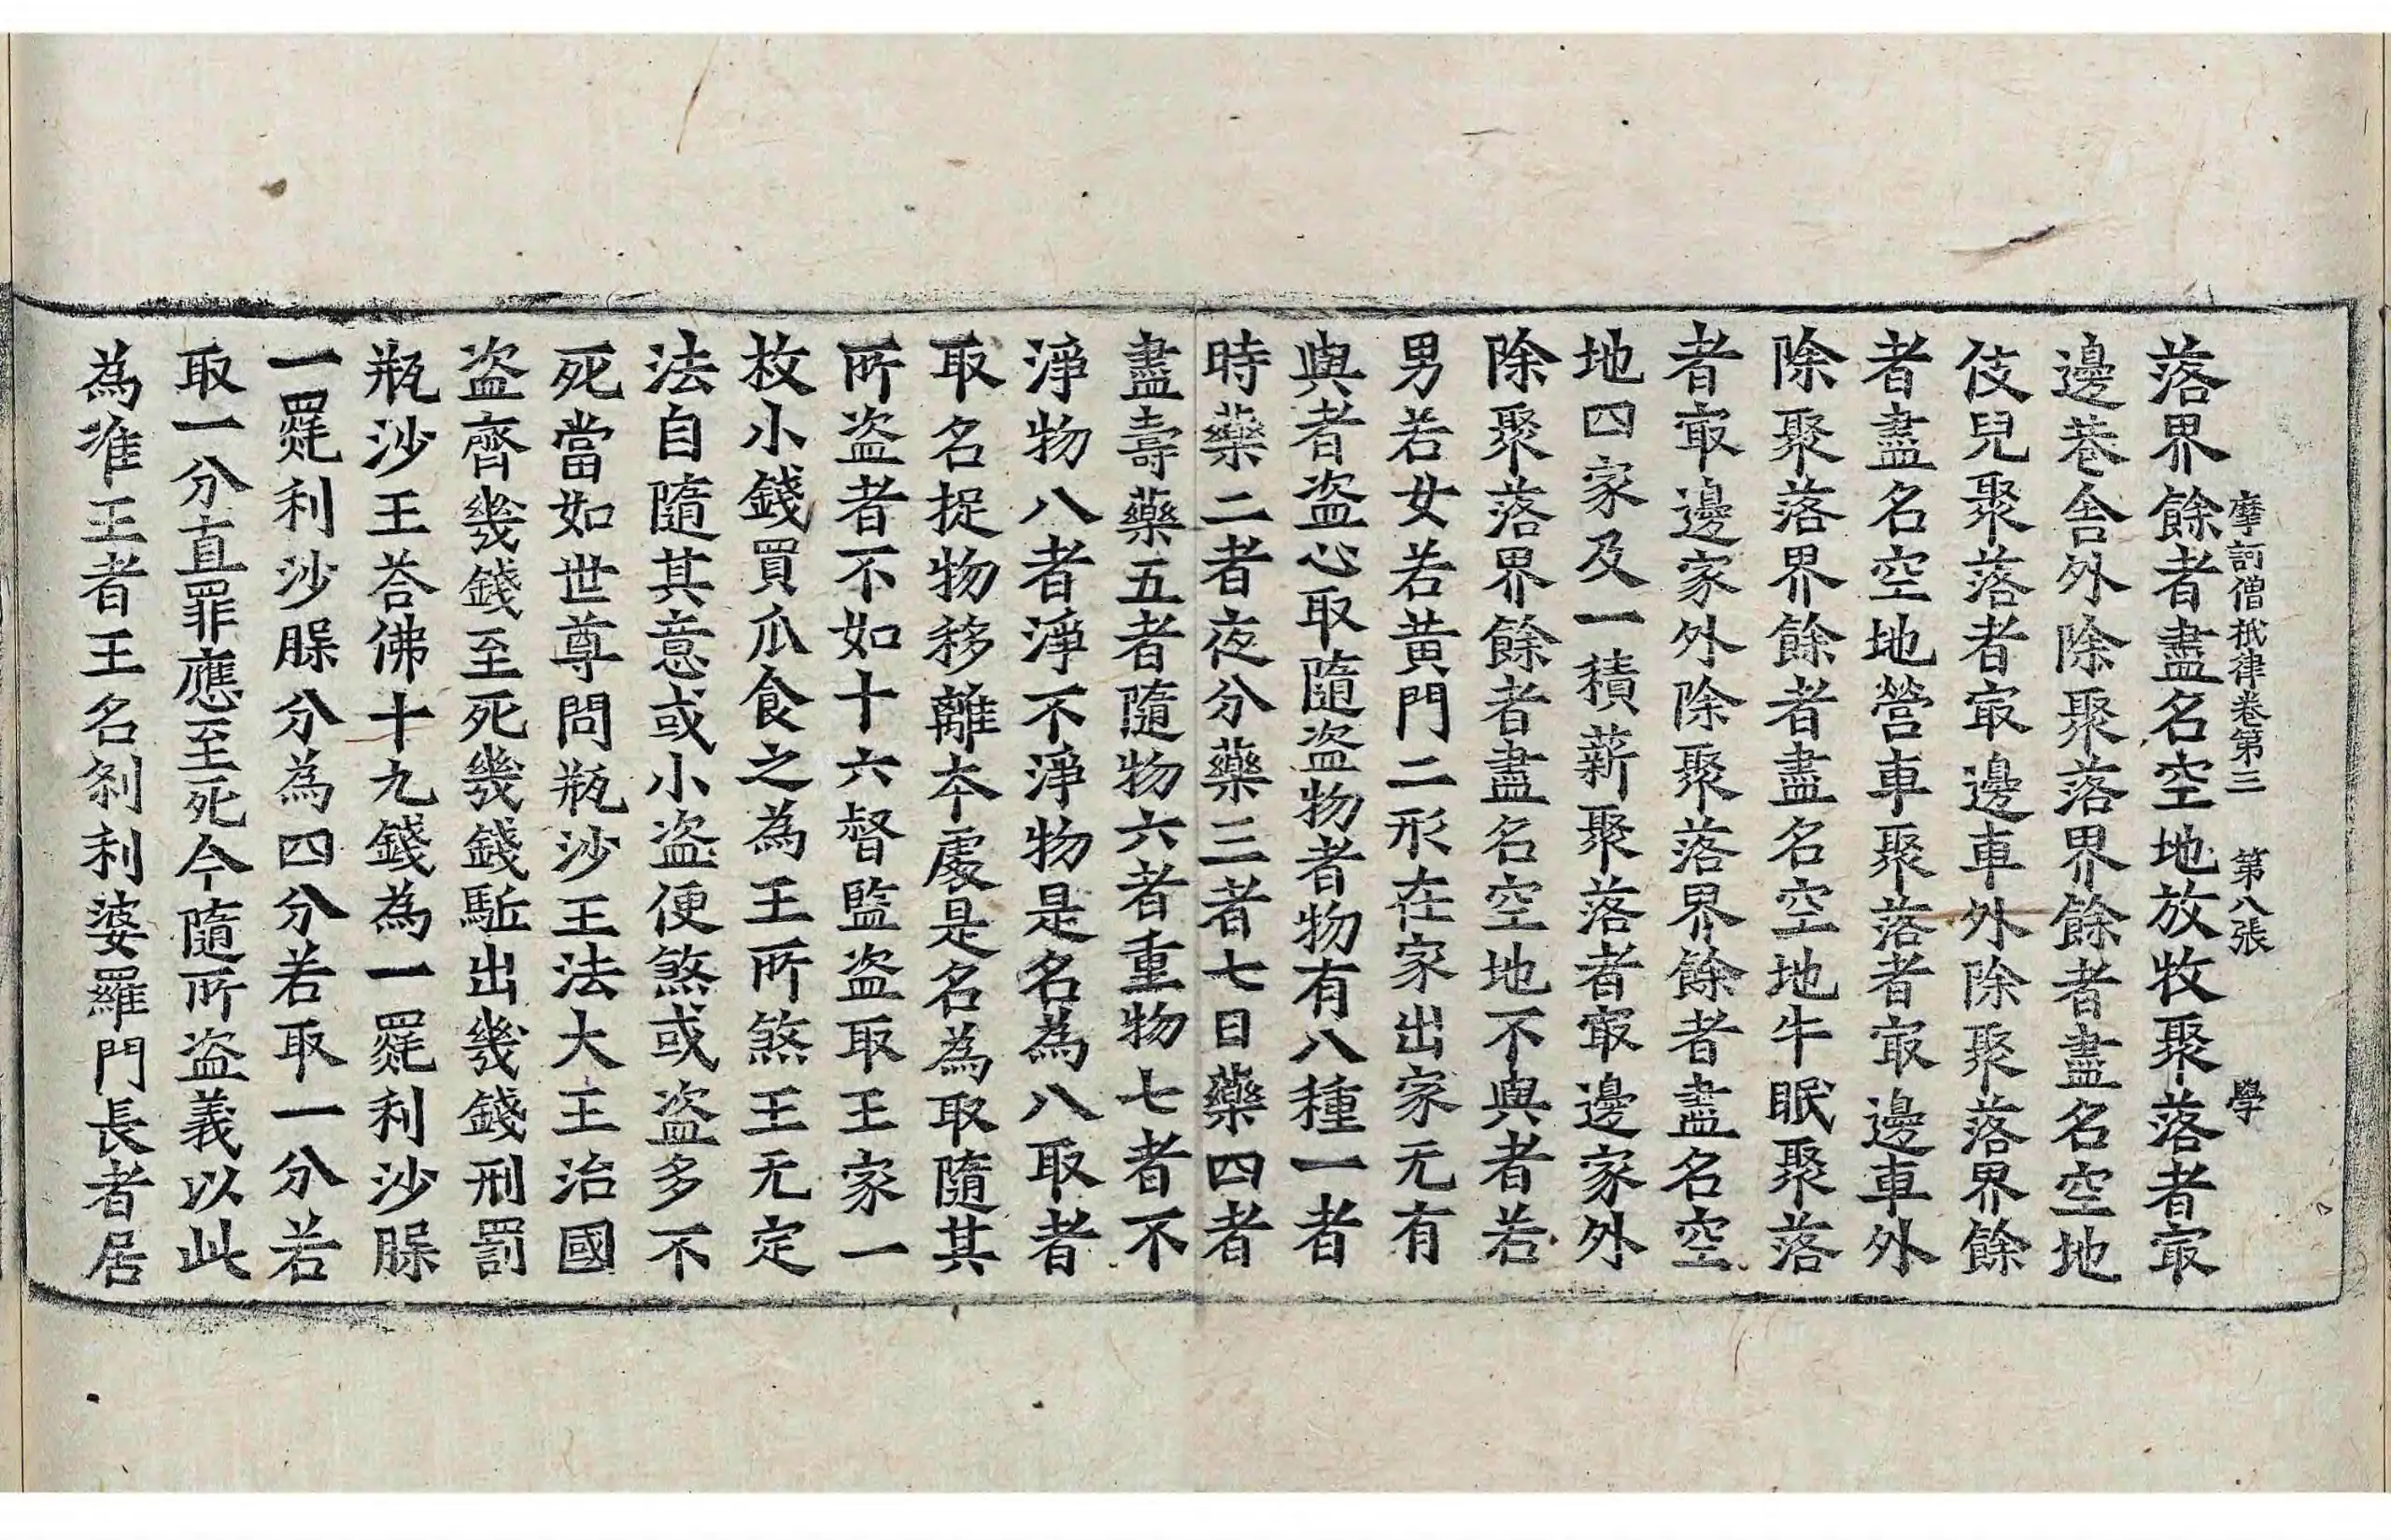 摩訶僧祇律卷第三 第八張 學
落界餘者盡名空地放牧聚落者㝡
邊巷舍外除聚落界餘者盡名空地
伎兒聚落者㝡邊車外除聚落界餘
者盡名空地營車聚落者㝡邊車外
除聚落界餘者盡名空地牛眠聚落
者㝡邊家外除聚落界餘者盡名空
地四家及一積薪聚落者㝡邊家外
除聚落界餘者盡名空地不與者若
男若女若黄門二形在家出家无有
與者盗心取隨盗物者物有八種一者
時藥二者夜分藥三者七日藥四者
盡壽藥五者隨物六者重物七者不
淨物八者淨不淨物是名為八取者
取名捉物移離本處是名為取隨其
所盗者不如十六督監盗取王家一
枚小錢買瓜食之為王所煞王无定
法自隨其意或小盗便煞或盗多不
死當如世尊問瓶沙王法大王治國
盗齊幾錢至死幾錢駈出幾錢刑罰
瓶沙王荅佛十九錢為一罽利沙槃
一罽利沙槃分為四分若取一分若
取一分直罪應至死今隨所盗義以此
為准王者王名刹利婆羅門長者居